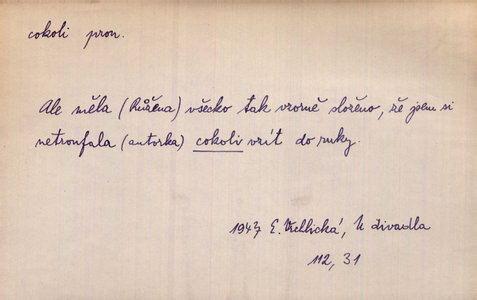 cokoli pron.
Ale měla (Růžena) všecko tak vzorně složeno, že jsem si
netroufala (autorka) cokoli vzít do ruky.
1947 E. Vrchlická, U divadla
112, 31